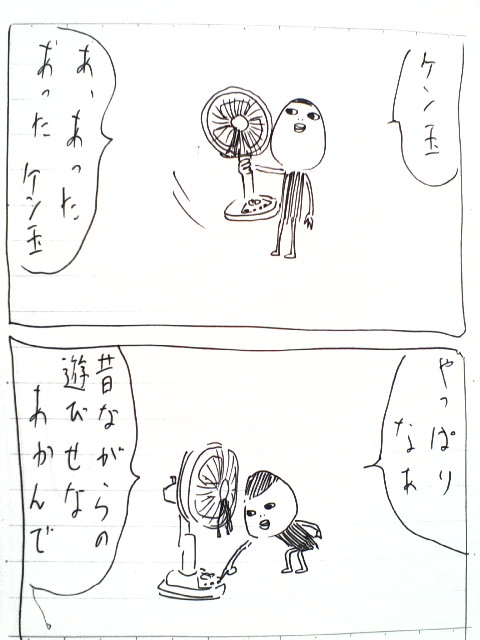 ケン玉
あ、あった
あった
ケン玉
やっぱり
なあ
昔ながらの
遊びせな
あかんで